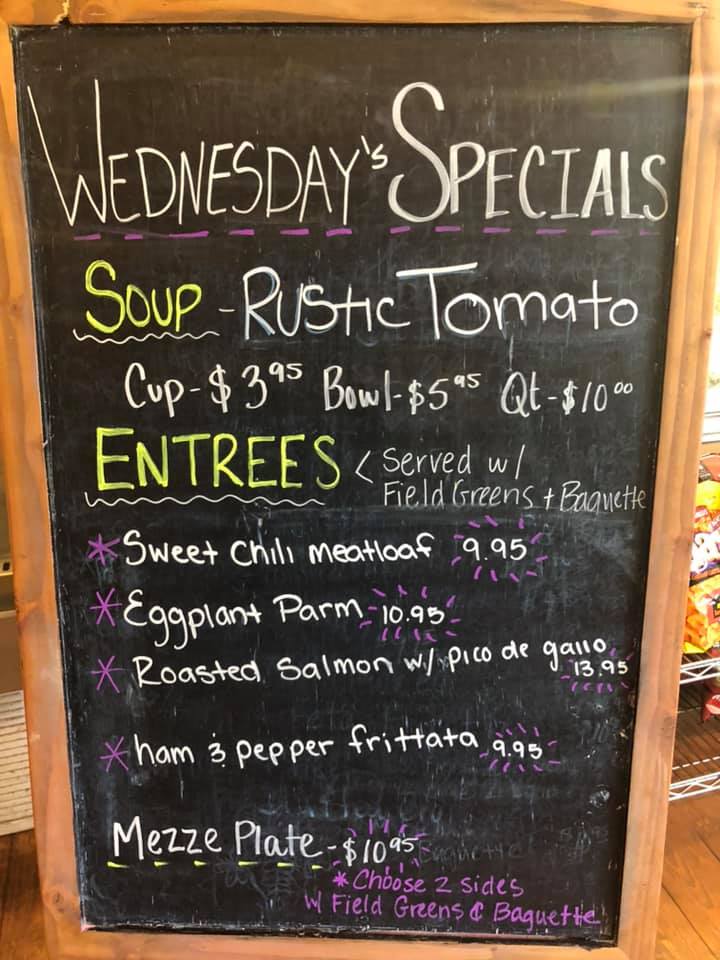 WEDNESDAY's SPECIALS
SOUP - RUStic Tomato
Cup - $3.95 Bowl - $5.95 Qt - $10.00
ENTREES < Served w/
Field Greens + Baguette
* Sweet Chili meatloaf 9.95
* Eggplant Parm 10.95
* Roasted Salmon w/ pico de gallo
13.95
* ham & pepper frittata 9.95
Mezze Plate - $10.95
* Choose 2 sides
w/ Field Greens & Baguette